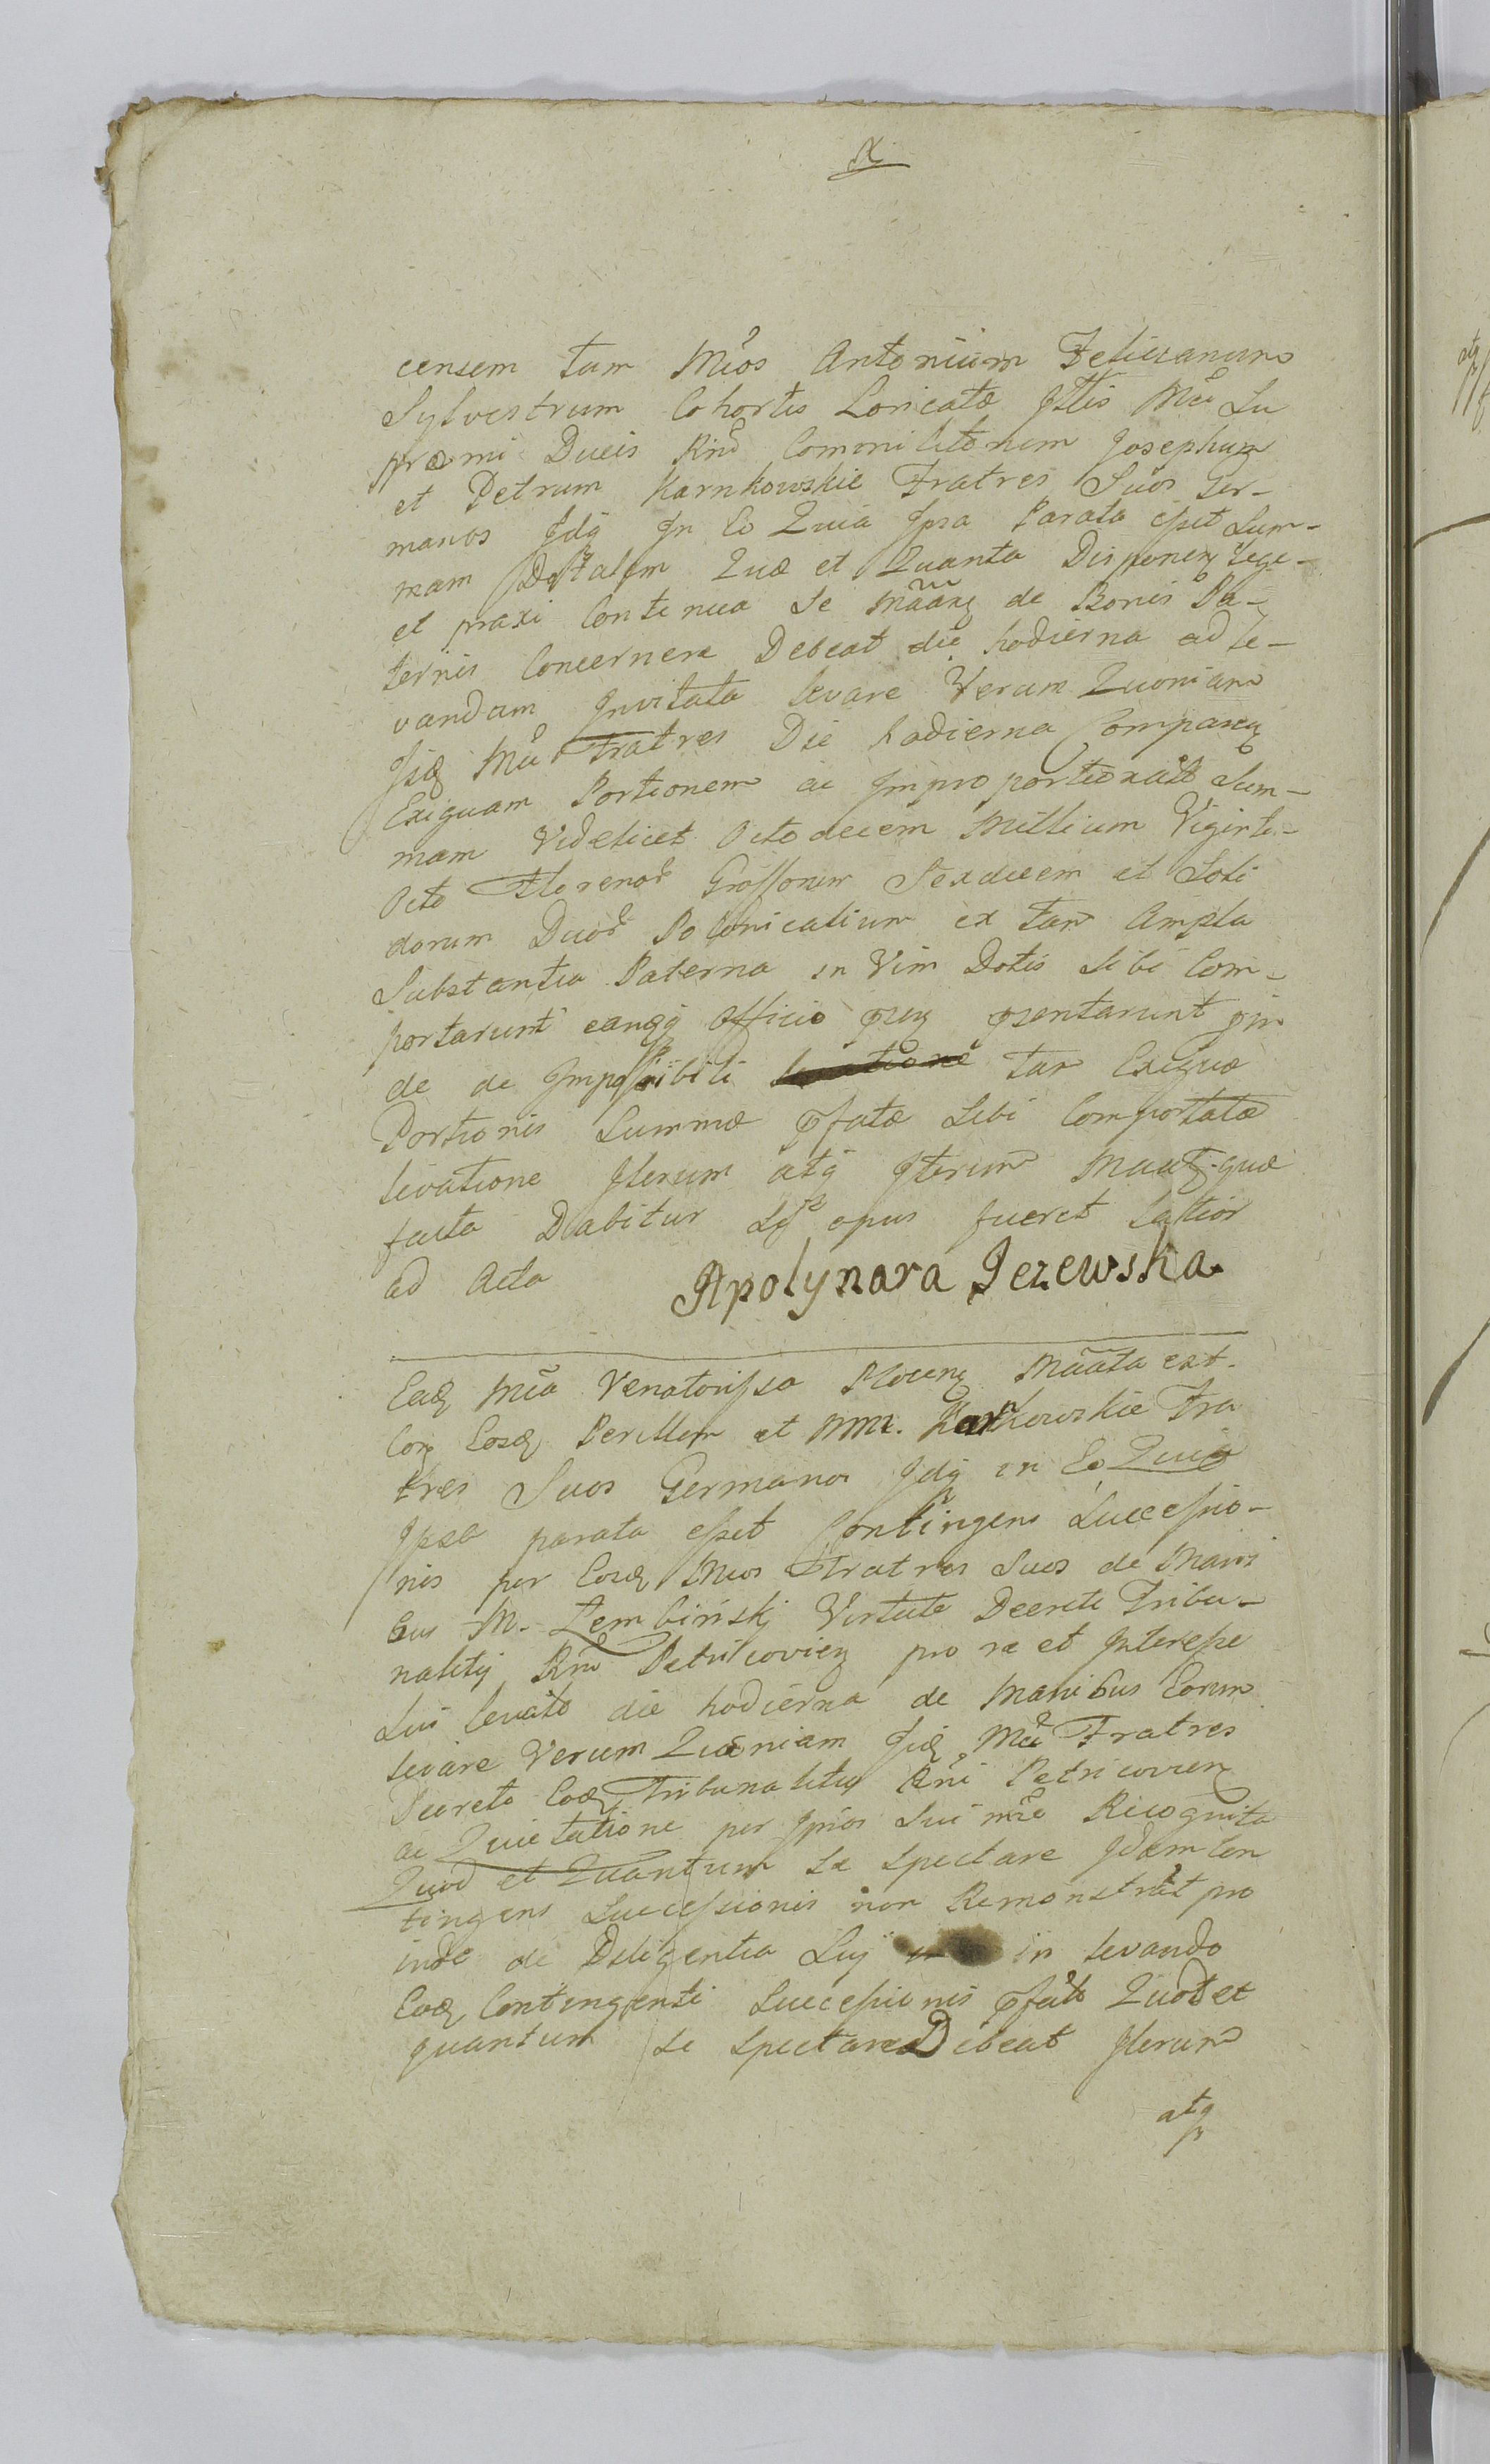 censem tam Mcos Antonium Felicianum
Sylvestrum Cohortis Loricatæ Illis Mci Su
præmi Ducis Rni Comonilitonem Josephum
et Petrum Karnkowskie Fratres Suos Ger-
manos Idq In Eo Quia Ipsa Parata esset Sum-
mam Dotalem Quæ et Quanta Disponen Lege
et praxi Continua Se de Bonis Pa-
ternis Concernere Debeat die hodierna ad le-
vandam Invitata levare Verum Quoniam
Iid Mci Fratres Die hodierna Comparen
Exiguam Portionem ac Improportionatã Sum-
mam Videlicet Octodecem Millium Viginti-
Octo Florenor Grossorum Sexdecem et Soli
dorum Duor Polonicalium ex tam Ampla
Substantia Paterna in Vim Dotis Sibi Com-
portarunt eandq Officio pñn pñsentarunt pin
de de Impossibili tam Exiguæ
Portionis Summæ pfatæ Sibi Comportatæ
levatione Iterum atq Iterum quæ
facta Dabitur Sq opus fuerit latior
ad Acta Apolynara Jezewska
Ead Mca Venatorissa Plocen Mãata est
Con Eosd Perillem et MM. Karnkowskie Fra
tres Suos Germanos Idq in Eo Quia
Ipsa parata esset Contingens Successio-
nis per Eosd Mcos Fratres Suos de Mani
bus M. Zembiński Virtute Decreti Tribu-
nalitij Rni Petricovien pro re et Interesse
Sui levato die hodierna de Manibus Eorum
levare Verum Quoniam Iid Mci Fratres
Decreto Eod Tribunalitio Rni Petricovien
ac Quietatione per Ipsos Sui Recognita
Quod et Quantum Se Spectare Idem Con
tingens Successionis non Remonstrãt pro
inde de Diligentia Suj in levando
Eod Contingenti Successionis pfato Quod et
quantum Se Spectare Debeat Iterum
atq